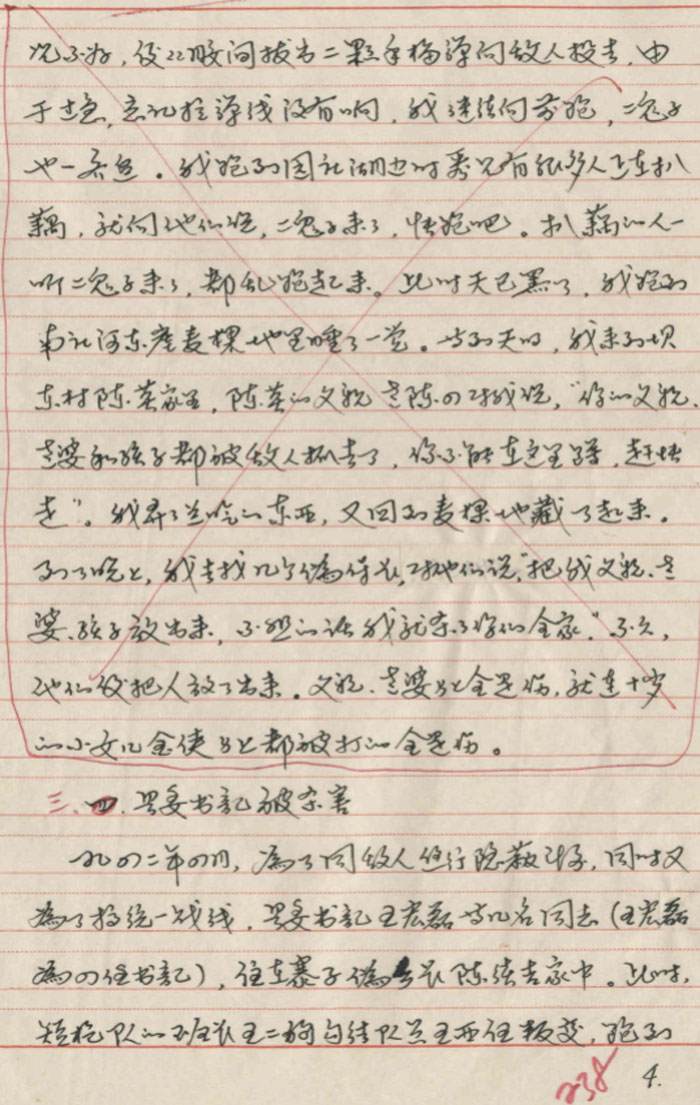 况不好，从腰间拔出二颗手榴弹向敌人投去，由
于过急，忘记拉弹线没有响，我连续向前跑，二鬼子
也一齐追。我跑到湖边时看见有很多人正在扒
藕，就向他们说，二鬼子来了，快跑吧。扒藕的人一
听二鬼子来了，都乱跑起来。此时天已黑了，我跑到
南 河东产麦棵地里睡了一觉。等到天明，我来到坝
东村陈英家里，陈英的父亲老陈の对我说，“你的父亲、
老婆和孩子都被敌人抓去了，你不能在这里蹲，赶快
走”。我弄了些吃的东西，又回到麦棵地藏了起来。
到了晚上，我去找几个伪保长，对他们说“把我父亲、老
婆、孩子放出来，不然的话我就杀了你们全家。”不久，
他们就把人放了出来。父亲、老婆身上全是伤，就连十岁
的小女儿金侠身上都被打的全是伤。
三、四、县委书记被杀害
一九の二年の月，为了同敌人进行隐蔽斗争，同时又
为了搞统一战线，县委书记王宏磊与几名同志（王宏磊
为の任书记），住在 伪 长陈 家中。此时，
短枪队的班长王二狗勾结队员王西任叛变，跑到
238
4.